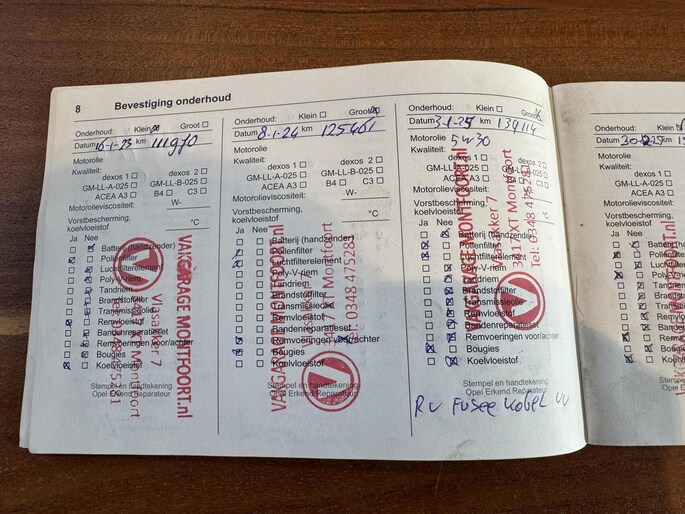 8 Bevestiging onderhoud
Onderhoud: Klein Groot
Datum 16-1-23 km 111970
Motorolie
Kwaliteit:
dexos 1 dexos 2
GM-LL-A-025 GM-LL-B-025
ACEA A3 B4 C3
Motorolieviscositeit: W-
Vorstbescherming,
koelvloeistof °C
Ja Nee
Batterij (handzender)
Pollenfilter
Luchtfilterelement
Poly-V-riem
Tandriem
Brandstoffilter
Transmissieolie
Remvloeistof
Bandenreparatieset
Remvoeringen voor/achter
Bougies
Koelvloeistof
Stempel en handtekening
Opel Erkend Reparateur
VAKGARAGE MONTFOORT.nl
Vlasakker 7
3417 XT Montfoort
Tel: 0348 475281
Onderhoud: Klein Groot
Datum 8-1-24 km 125461
Motorolie
Kwaliteit:
dexos 1 dexos 2
GM-LL-A-025 GM-LL-B-025
ACEA A3 B4 C3
Motorolieviscositeit: W-
Vorstbescherming,
koelvloeistof °C
Ja Nee
Batterij (handzender)
Pollenfilter
Luchtfilterelement
Poly-V-riem
Tandriem
Brandstoffilter
Transmissieolie
Remvloeistof
Bandenreparatieset
Remvoeringen voor/achter
Bougies
Koelvloeistof
Stempel en handtekening
Opel Erkend Reparateur
VAKGARAGE MONTFOORT.nl
Vlasakker 7
3417 XT Montfoort
Tel: 0348 475281
Onderhoud: Klein Groot
Datum 3-1-25 km 139114
Motorolie 5w30
Kwaliteit:
dexos 1 dexos 2
GM-LL-A-025 GM-LL-B-025
ACEA A3 B4 C3
Motorolieviscositeit: W-
Vorstbescherming,
koelvloeistof °C
Ja Nee
Batterij (handzender)
Pollenfilter
Luchtfilterelement
Poly-V-riem
Tandriem
Brandstoffilter
Transmissieolie
Remvloeistof
Bandenreparatieset
Remvoeringen voor/achter
Bougies
Koelvloeistof
Stempel en handtekening
Opel Erkend Reparateur
VAKGARAGE MONTFOORT.nl
Vlasakker 7
3417 XT Montfoort
Tel: 0348 475281
Fusee kogel
Onderhoud: Klein
Datum
Motorolie
Kwaliteit:
dexos 1
GM-LL-A-025
ACEA A3
Motorolieviscositeit:
Vorstbescherming,
koelvloeistof
Ja Nee